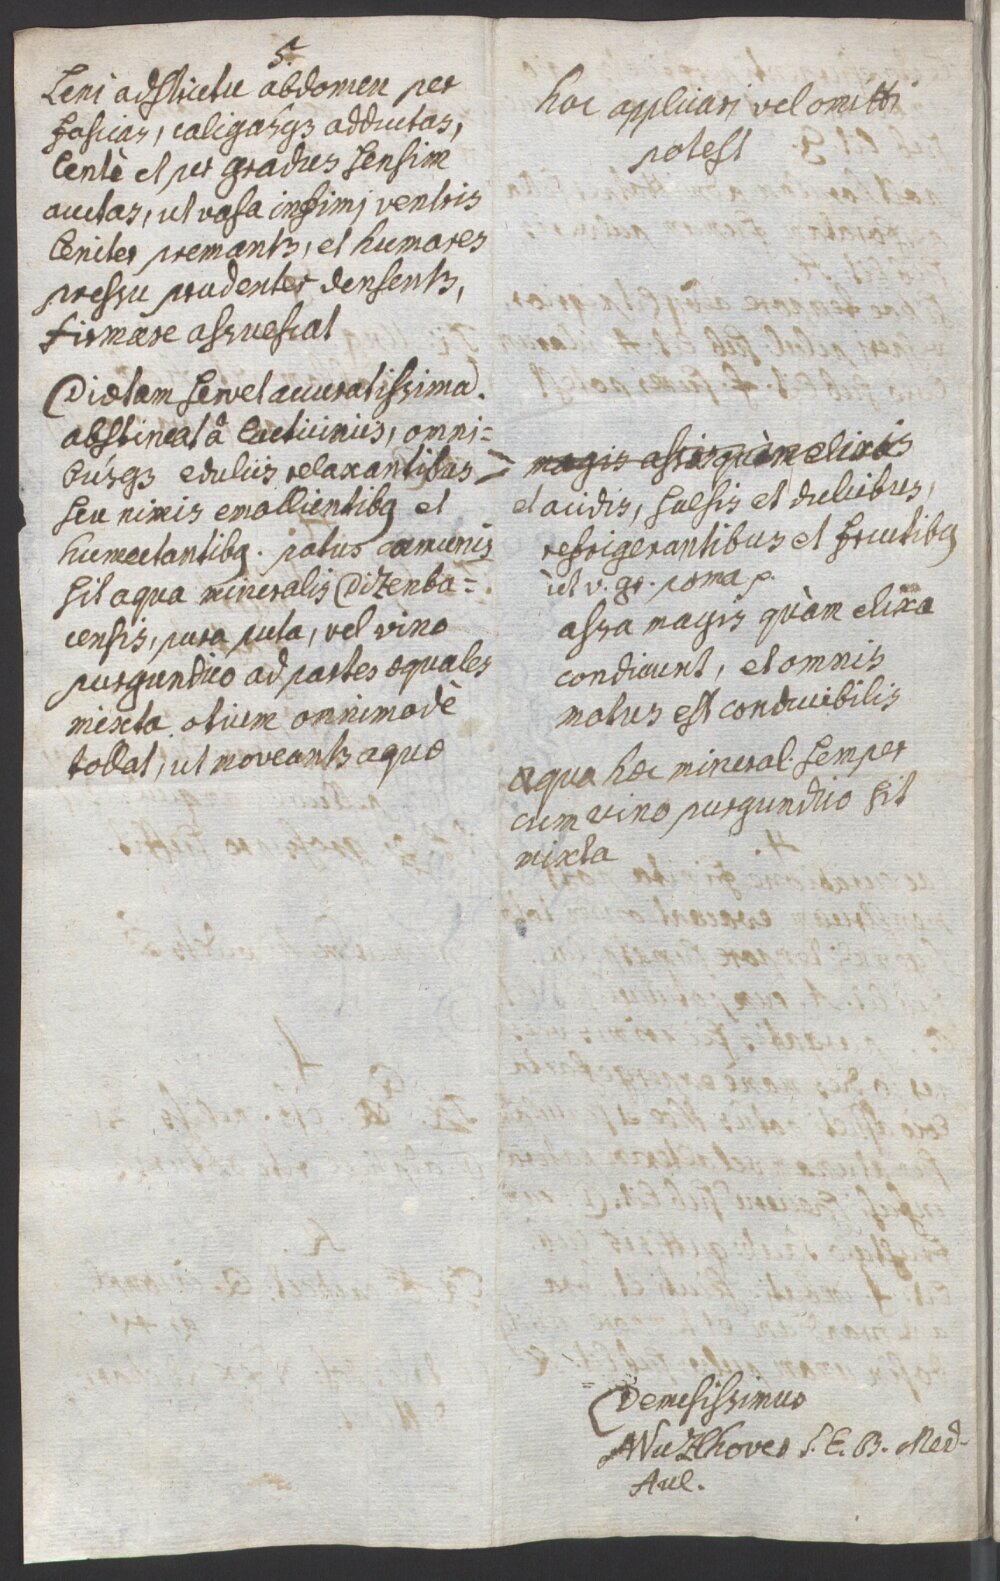 5.
Leni adstrictu abdomen per
fascias, caligasqз adductas,
lentè et per gradus sensim
auctas, ut vasa infimj ventris
leniter premantз, et humores
pressu prudenter densentз,
firmare assuescat
Diætam servet accuratissima.
abstineat â lacticiniis, omni=
busqз eduliis relaxantibus
seu nimis emollientibq et
humectantibq. potus com̄unis
sit aqua mineralis Dizenba=
censis, pura puta, vel vino
purgundico ad partes æquales
mixta. otium omnimodè
tollat, ut moveantз aquæ
hoc applicari vel omitti
potest
magis assis quàm elixis
et acidis, salsis et dulcibus,
refrigerantibus et fructibq
ùt v. gr. poma p.
assa magis quàm elixa
condicunt, et omnis
motus est conducibilis
aqua hæc mineral. semper
cum vino purgundico sit
mixta
Demisissimus
S. E. B. Med.
Aul.